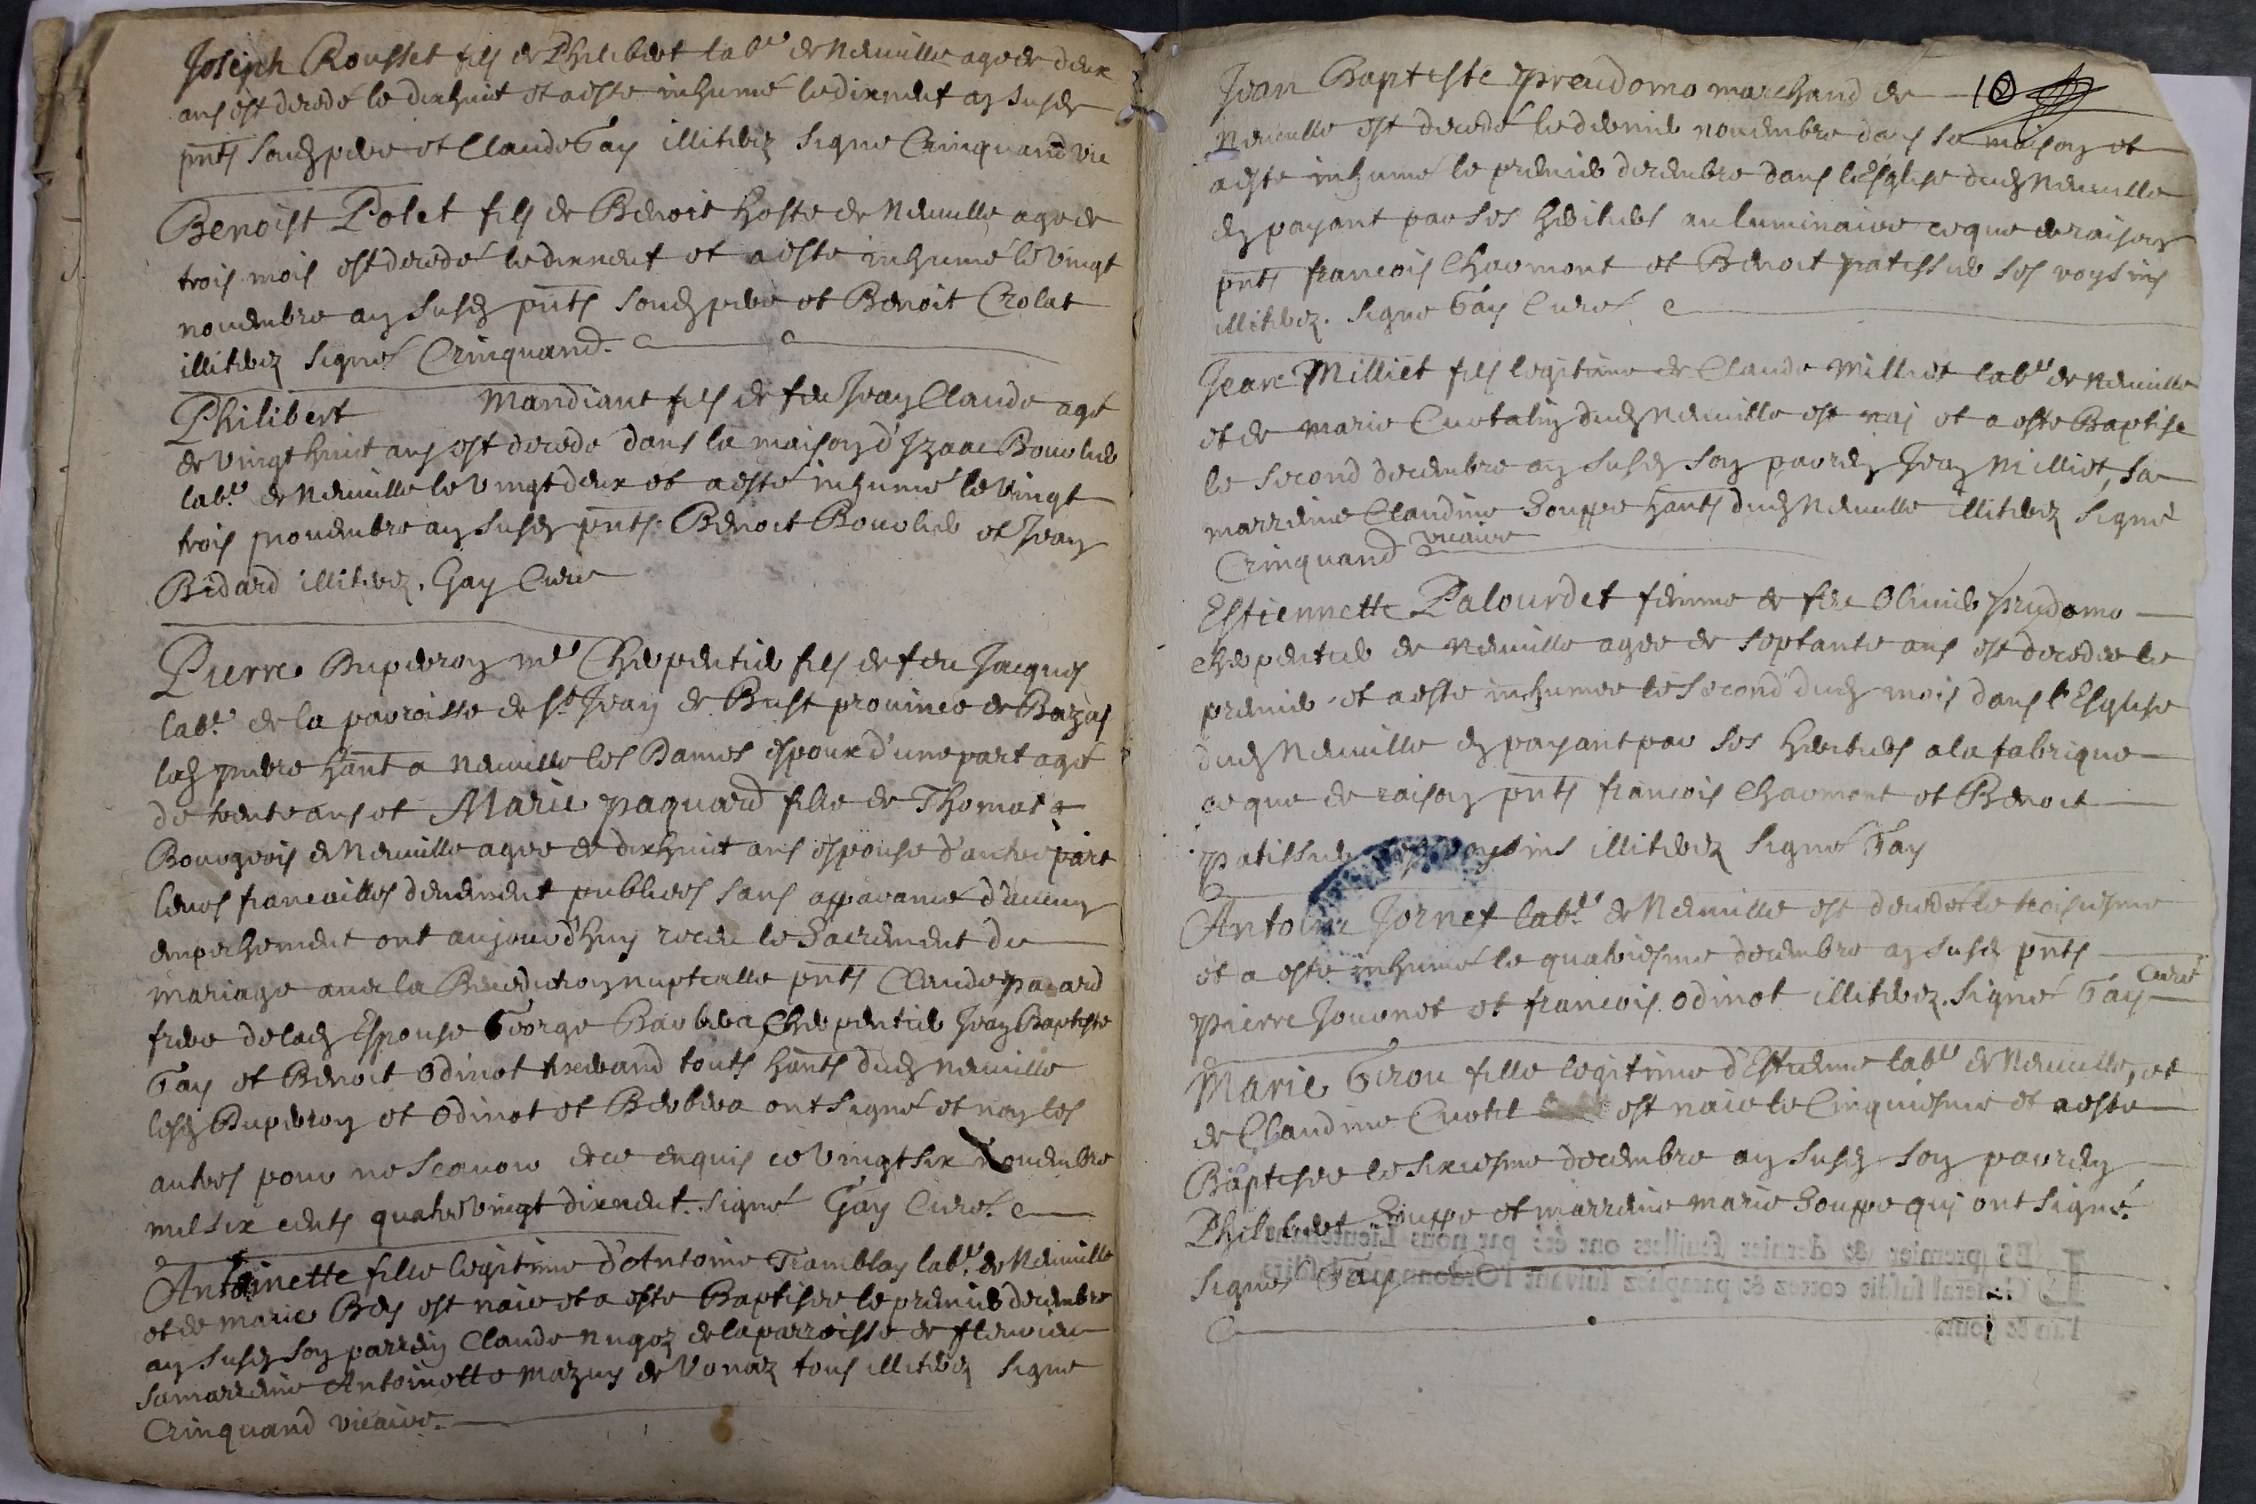 Joseph Rousset fils de Philibert lab.r de Neuville age de deux
ans est decedé le dixhuit et a esté inhumé le dixneuf an susd
pnts sond pere et Claude Gay illiterez signé Crinquand vic
Benoist Polet fils de Benoit hoste de Neuville age de
trois mois est decedé le dixneuf et a esté inhumé le vingt
novembre an susd pnts sond pere et Benoit Crolat
illiterez signé Crinquand.
Philibert Mandiant fils de feu Jean Claude agé
de vingt huit ans est decedé dans la maison d'Izaac Bouvlier
lab.r de Neuville le vingtdeux et a esté inhumé le vingt
trois novembre an susd pnts. Benoit Bouvlier et Jean
Bidard illiterez. Gay Curé
Pierre Duperon m.e Charpentier fils de feu Jacques
lab.r de la parroisse de st Jean de province de Bazas
led pierre hant a Neuville les Dames espoux d'une part agé
de trente ans et Marie paquard fille de Thomas
Bourgeois de Neuville agee de dixhuit ans espouse d'autre part
leurs fiancailles deuement publiees sans apparance d'aucun
empechement ont aujourd'huy receu le Sacrement de
mariage avec la Benediction nuptialle pnts Claude pacard
frere de lad Espouse George Barbera Charpentier Jean Baptiste
Gay et Benoit Odinot tisserand touts hants dud Neuville
lesd Duperon et Odinot et Berbera ont signé et non les
autres pour ne scavoir de ce enquis ce vingt six Novembre
mil six cents quatrevingt dixneuf. signé Gay Curé.
Antoinette fille legitime d'Antoine Tramblay lab.r de Neuville
et de marie Bey est naie et a esté Baptisee le premier decembre
an susd son parrein Claude nugoz de la parroisse de fleurieu
sa marreine Antoinette mazuy de Vonaz tous illiterez signé
Crinquand vicaire.
Jean Baptiste preudomo marchand de 10
Neuville est decedé le dernier novembre dans sa maison et
a esté inhumé le premier decembre dans l'Esglise dud Neuville
en payant par ses heritiers au luminaire ce que de raison
pnts francois Chaomont et Benoit patissier ses voysins
illiterez. signé Gay Curé.
Jean Milliet fils legitime de Claude Milliet lab.r de Neuville
et de marie Cuotalin dud Neuville est nai et a esté Baptisé
le second decembre an susd son parrein Jean Milliet, sa
marreine Claudine Gouppe hants dud Neuville illiterez signé
Crinquand vicaire
Estiennette Palourdet femme de feu Olivier prudomo
charpentier de Neuville agee de septante ans est decedee le
premier et a esté inhumee le second dud mois dans l'Esglise
dud Neuville en payant par ses heritiers a la fabrique
ce que de raison pnts francois Chaomont et Benoit
patissier ses voysins illiterez signé Gay
Antoine Jornet lab.r de Neuville est decedé le troisiesme
et a esté inhumé le quatriesme decembre an susd pnts
pierre Jouonet et francois Odinot illiterez. signé Gay curé
Marie Girou fille legitime d'Estienne lab.r de Neuville, et
de Claudine Cuotil est naie le Cinquiesme et a esté
Baptisee le sixiesme decembre an susd son parrein
Philibert Gouppe et marreine marie Gouppe qui ont signé.
Signé Gay
LES premier & dernier feuillets ont été par nous Lieutenant
General susdit cottez & paraphez suivant l'Ordonnance